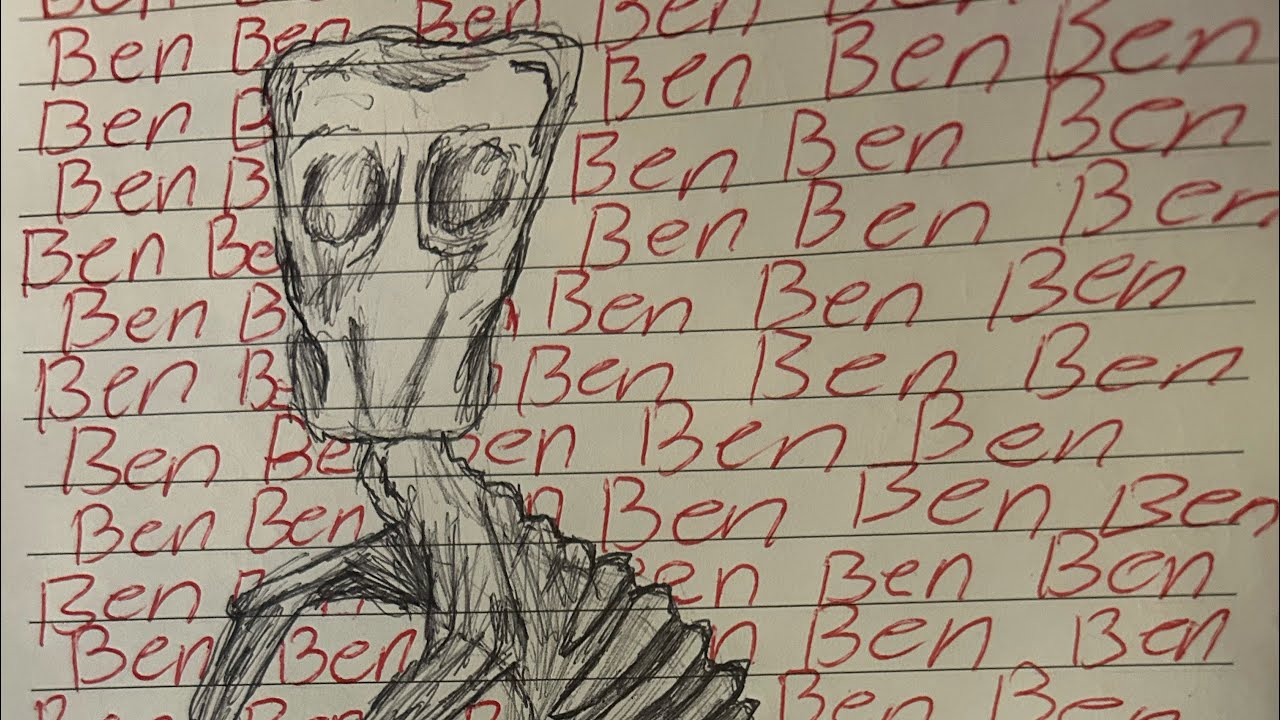 Ben Ben
Ben Ben Ben Ben Ben
Ben B Ben Ben Ben
Ben B Ben Ben Ben
Ben Be Ben Ben Ben
Ben B Ben Ben Ben
Ben Be Ben Ben Ben
Ben Be Ben Ben Ben
Ben Ben n Ben Ben Ben
Ben en Ben Ben
Ben Ben n Ben Ben
Ben Ben Ben Ben